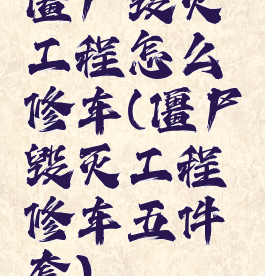 僵尸毁灭
工程怎么
修车(僵尸
毁灭工程
修车五件
套)